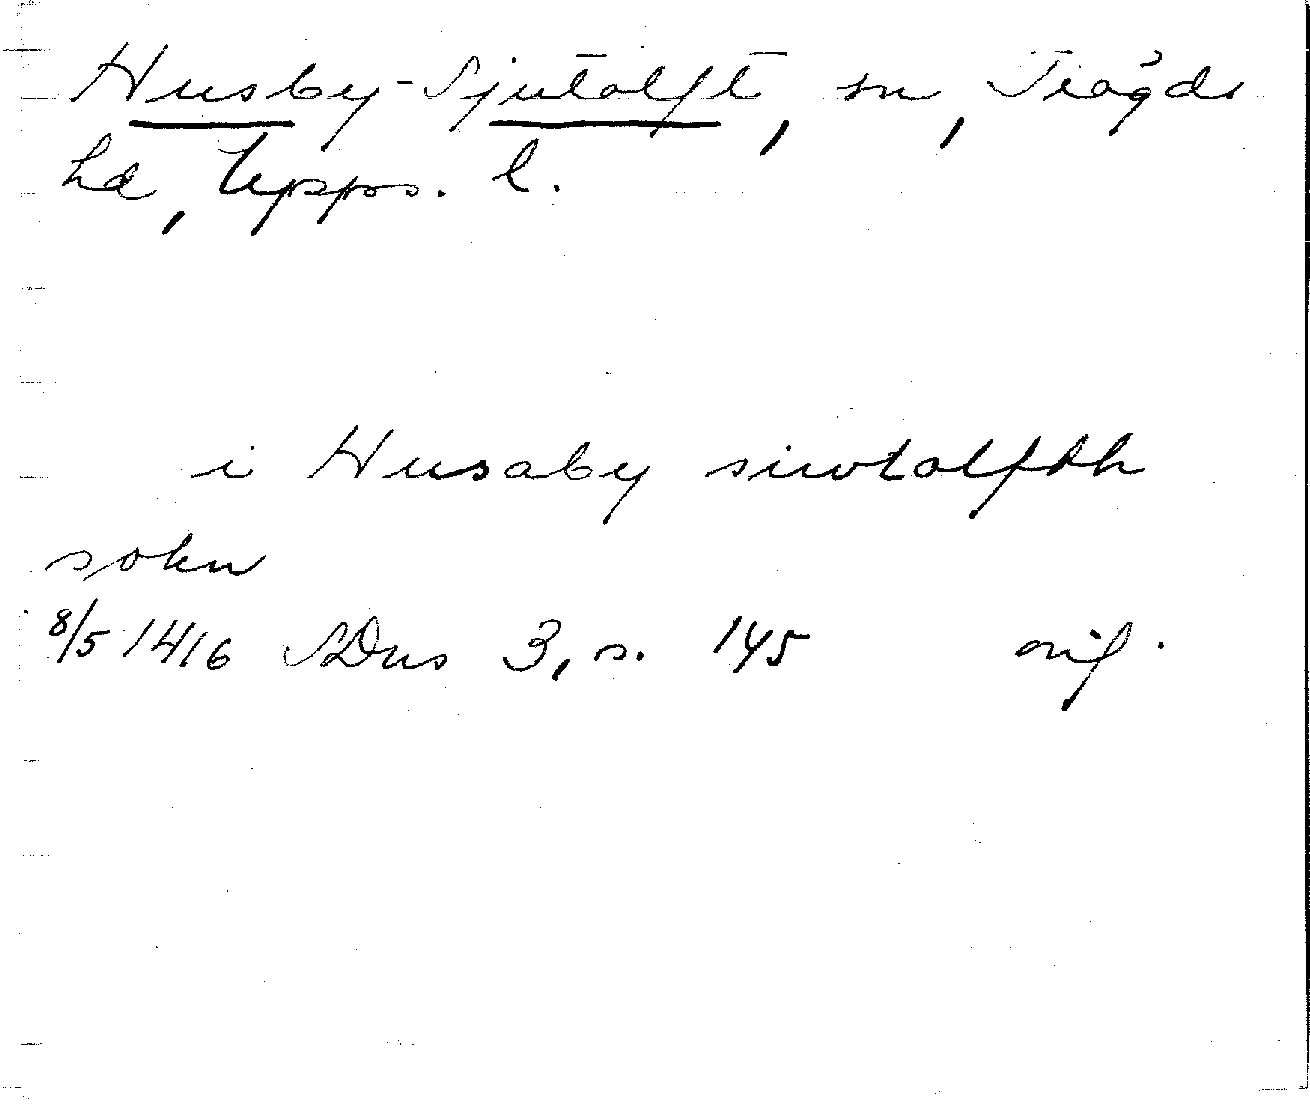 Husby-Sjutolft, sn, Trögds
hd, Upps. l.
i Husaby siwtolfth
sokn
8/5 1416 SDns 3, s. 145 orig.